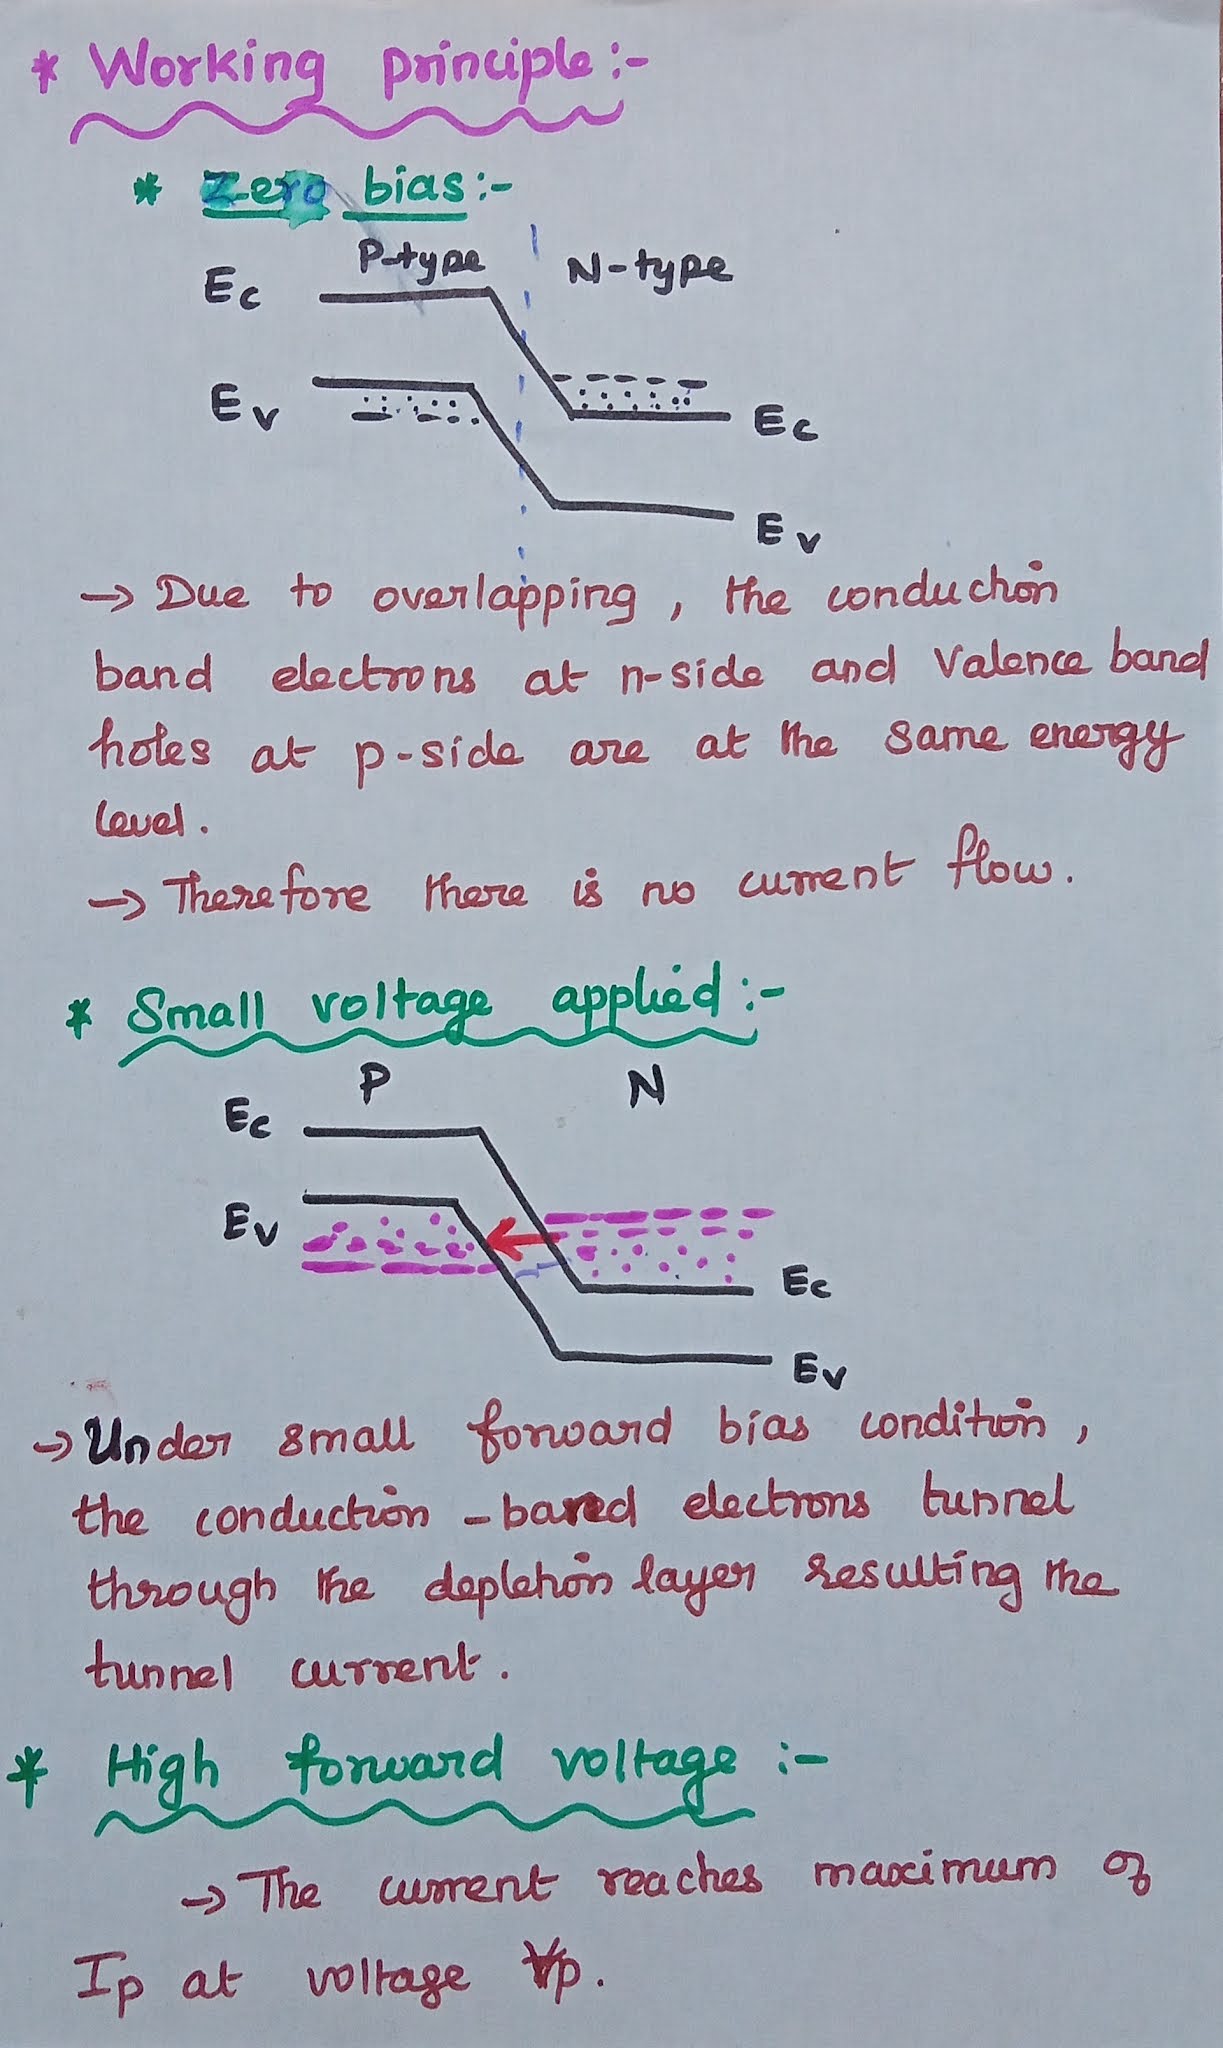 * Working principle:-
* Zero bias:-
P-type N-type
Ec
Ev
Ec
Ev
→ Due to overlapping, the conduction
band electrons at n-side and Valence band
holes at p-side are at the same energy
level.
→ Therefore there is no current flow.
* Small voltage applied:-
P N
Ec
Ev
Ec
Ev
→ Under small forward bias condition,
the conduction-band electrons tunnel
through the depletion layer resulting the
tunnel current.
* High forward voltage:-
→ The current reaches maximum of
Ip at voltage Vp.